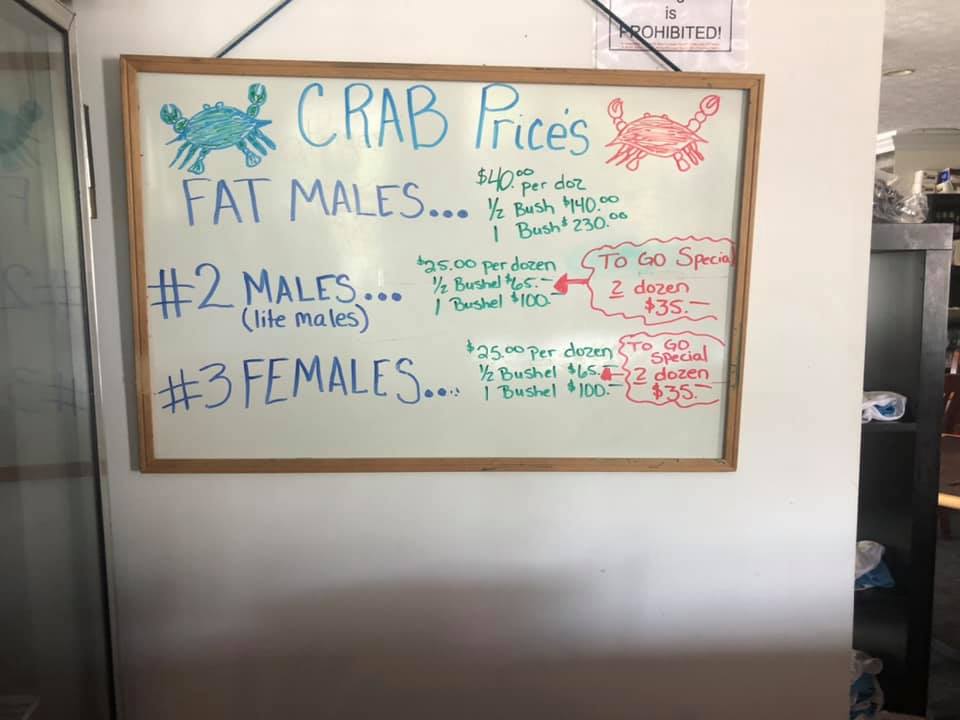 is
PROHIBITED!
CRAB Price's
FAT MALES... $40.00 per doz
1/2 Bush $140.00
1 Bush $230.00
#2 MALES...
(lite males)
$25.00 per dozen
1/2 Bushel $65.—
1 Bushel $100.—
TO GO Special
2 dozen
$35.—
#3 FEMALES....
$25.00 per dozen
1/2 Bushel $65.—
1 Bushel $100.—
TO GO
Special
2 dozen
$35.—